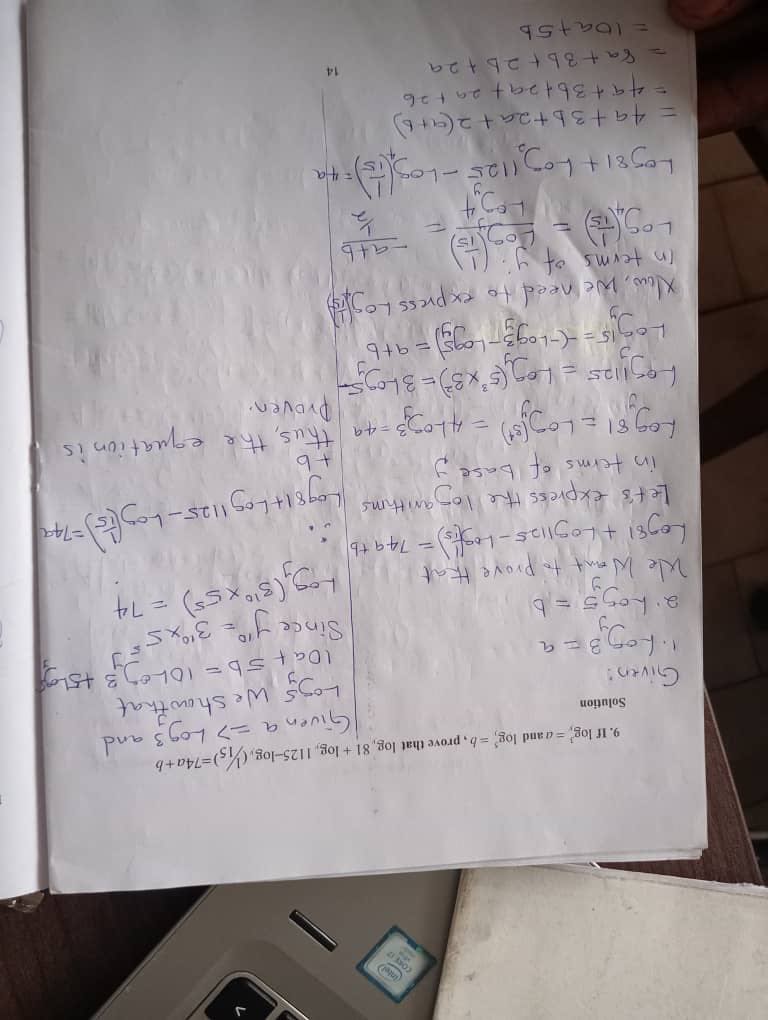 intel
CORE i7
9. If log³ = a and log⁵ = b, prove that log 81 + log 1125–log (1/15)=74a+b
Solution
Given:
1. Log_y 3 = a
2. Log_y 5 = b
We Want to prove that
Log81 + Log1125 - Log(1/15) = 74a+b
Let's express the logarithms
in terms of base y
Log_y 81 = Log_y(3⁴) = 4Log_y 3 = 4a
Log_y 1125 = Log_y(5³×3²) = 3Log_y 5
Log_y 15 = -(-Log_y 3 - Log_y 5) = a+b
Now, we need to express Log_4(1/15)
in terms of y:
Log_4(1/15) = Log_y(1/15) / Log_y 4 = -a+b / 1/2
Log81 + Log_2 1125 - Log_4(1/15) = 4a
= 4a + 3b + 2a + 2(a+b)
= 4a + 3b + 2a + 2a + 2b
= 8a + 3b + 2b + 2a
= 10a + 5b
Given a => Log_y 3 and
Log_y 5 We show that
10a + 5b = 10Log_y 3 + 5Log_y 5
Since y¹⁰ = 3¹⁰ × 5⁵
Log_y(3¹⁰ × 5⁵) = 74
∴
Log81 + Log1125 - Log(1/15) = 74a
+b
thus, the equation is
Proven.
14